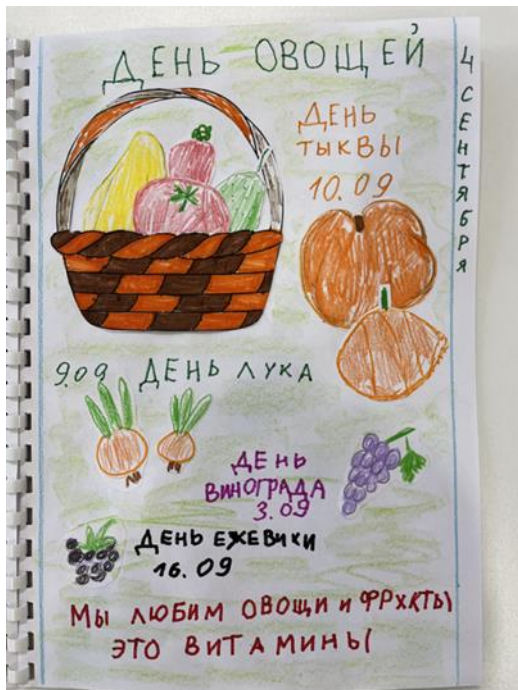 ДЕНЬ ОВОЩЕЙ
4 СЕНТЯБРЯ
ДЕНЬ
ТЫКВЫ
10.09
9.09 ДЕНЬ ЛУКА
ДЕНЬ
ВИНОГРАДА
3.09
ДЕНЬ ЕЖЕВИКИ
16.09
МЫ ЛЮБИМ ОВОЩИ И ФРУКТЫ
ЭТО ВИТАМИНЫ